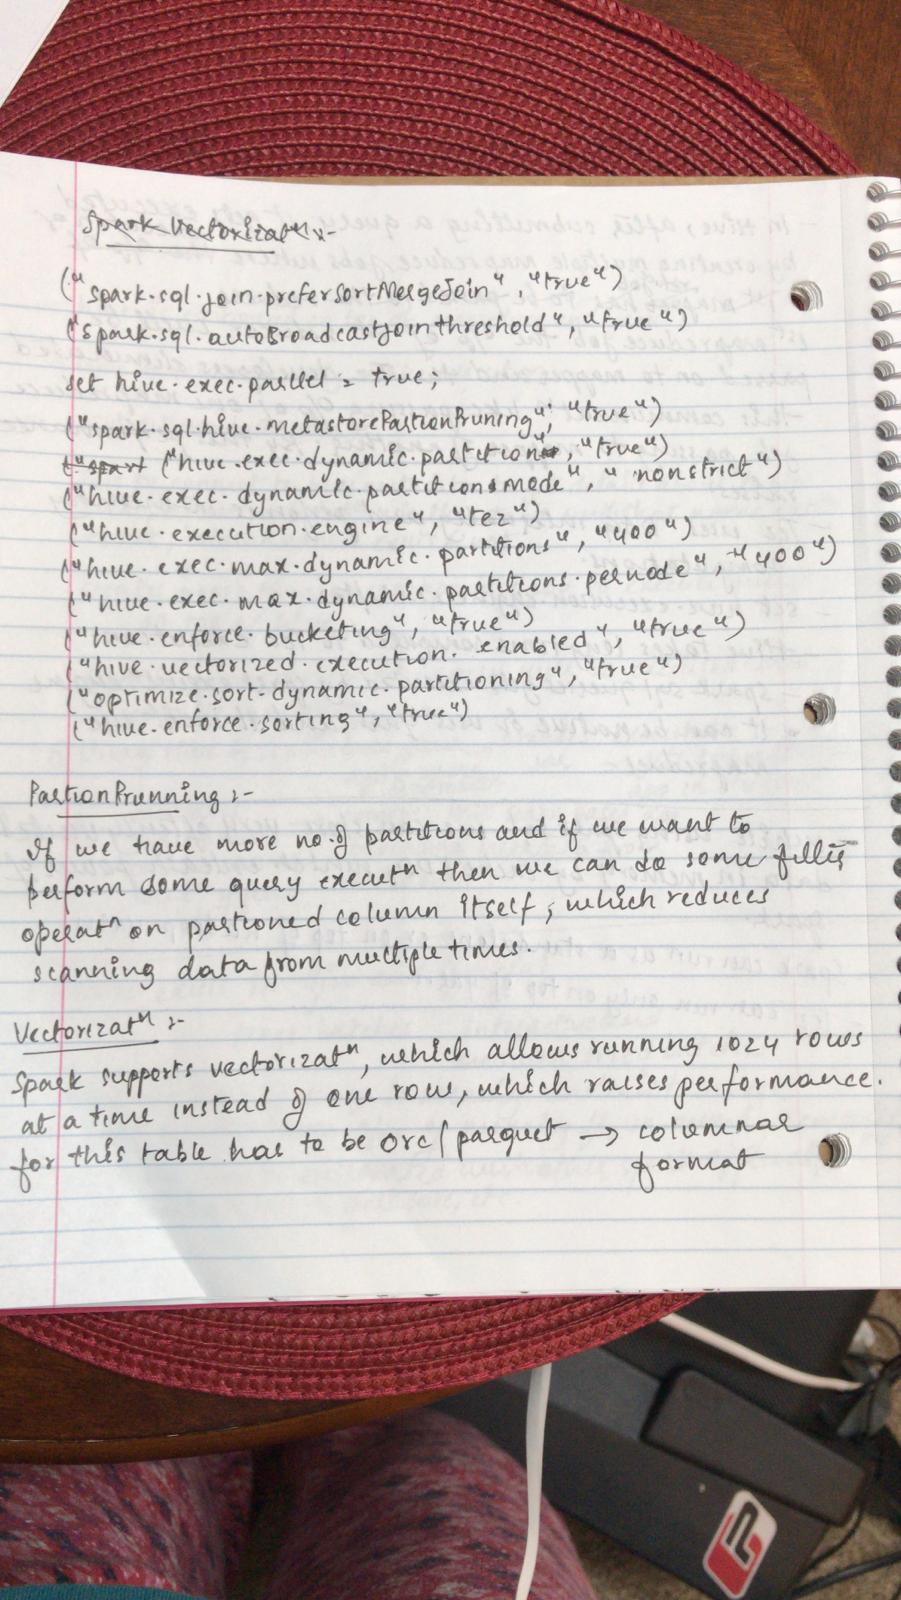 Spark Vectorizatⁿ :-
("spark.sql.join.preferSortMergeJoin", "true")
("spark.sql.autoBroadcastJointhreshold", "true")
set hive.exec.parllel = true;
("spark.sql.hive.metastorePartionPruning", "true")
("spart ("hive.exec.dynamic.partition", "true")
("hive.exec.dynamic.partitions mode", "nonstrict")
("hive.execution.engine", "tez")
("hive.exec.max.dynamic.partitions", "400")
("hive.exec.max.dynamic.partitions.pernode", "400")
("hive.enforce.bucketing", "true")
("hive.vectorized.execution.enabled", "true")
("optimize.sort.dynamic.partitioning", "true")
("hive.enforce.sorting", "true")
PartionPrunning :-
If we have more no.of partitions and if we want to
perform some query executⁿ then we can do some filter
operatⁿ on partioned column itself, which reduces
scanning data from multiple times.
Vectorizatⁿ :-
Spark supports vectorizatⁿ, which allows running 1024 rows
at a time instead of one row, which raises performance.
for this table has to be orc/parquet → columnar
format